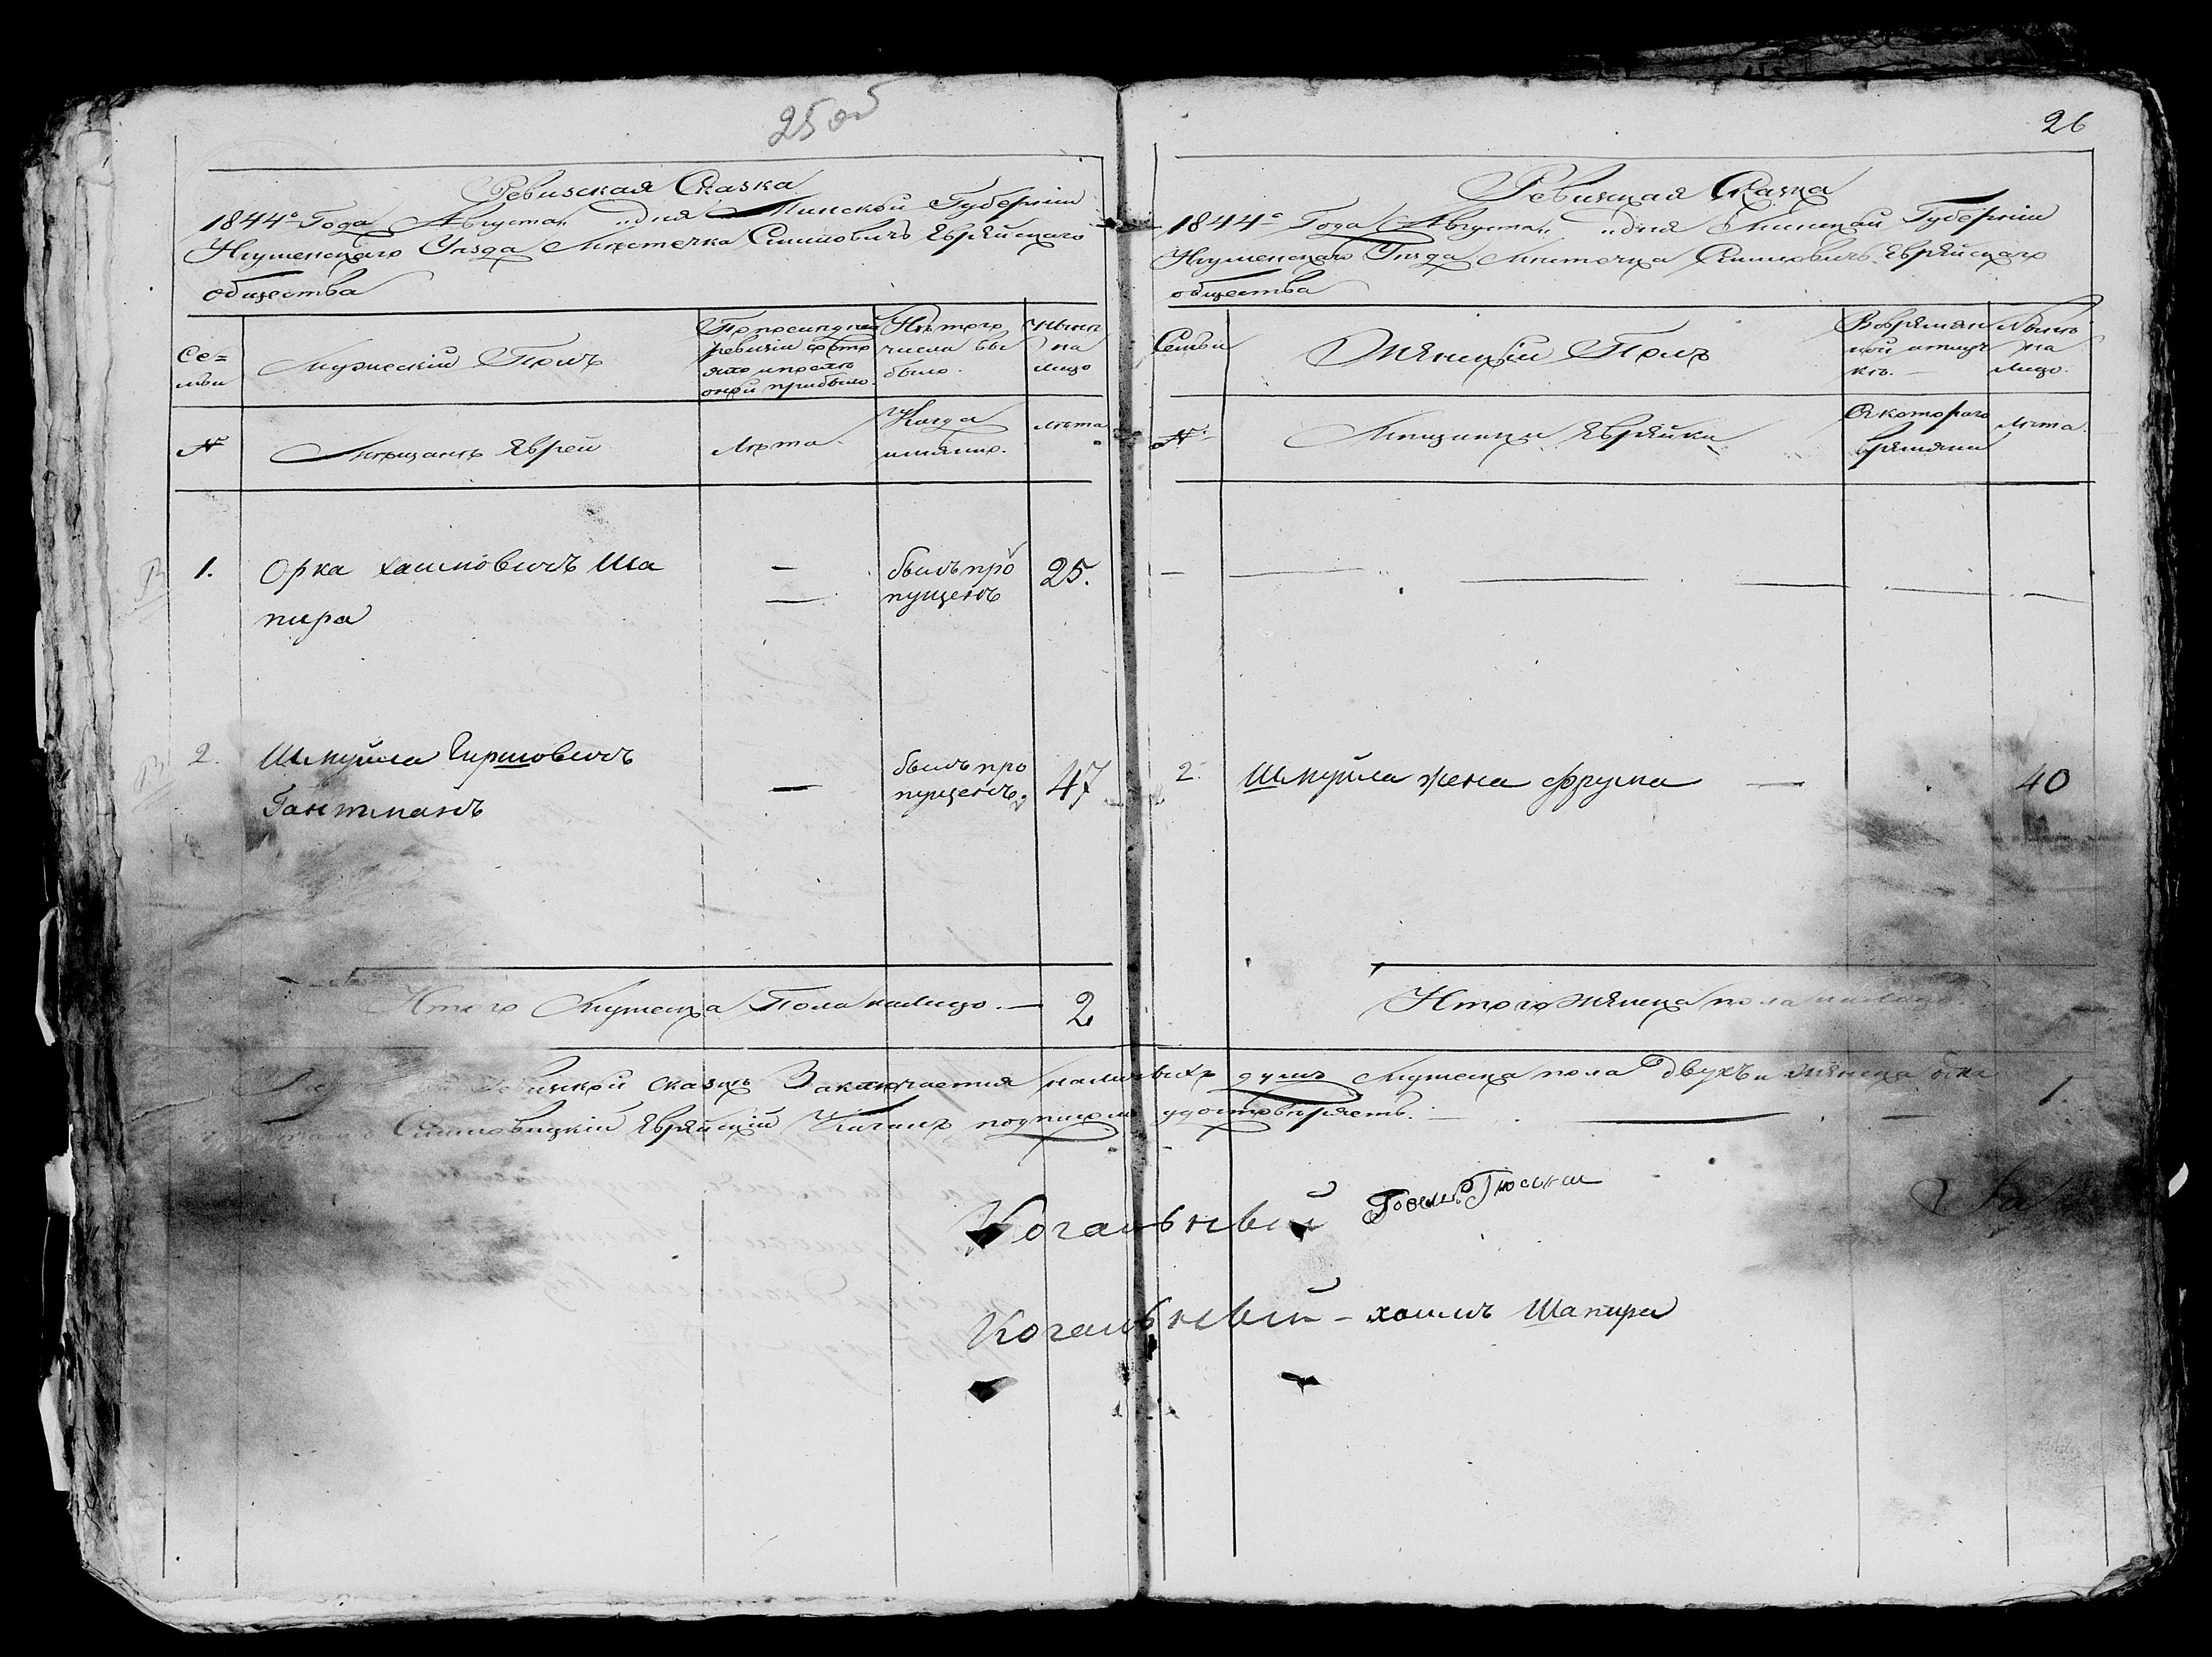 25 об
Ревизская Сказка
1844го Года Августа „ „ дня Минской Губернии
Игуменскаго Уезда Местечка Смиловичъ Еврейскаго
общества
Се=
мьи
Мужеский Полъ
По последней
ревизии состо
яло и после
оной прибыло.
Изъ того
числа вы
было.
Ныне
на
лицо
№
Мещане Евреи
Лета.
Когда
имянно.
лета
1.
Орка Хаимовичъ Ша
пира
—
былъ про
пущенъ
25.
2.
Шмуйла Гиршовичъ
Гантманъ
—
былъ про
пущенъ
47
Итого Мужеска Пола налицо. — 2
26
Ревизская Сказка
1844го Года Августа „ „ дня Минской Губернии
Игуменскаго Уезда Местечка Смиловичъ Еврейскаго
общества
Семьи
Женский Полъ
Во времян
ной отлуч
ке. —
Ныне
на
лицо.
№
Мещанки Еврейки
Съ котораго
времяни
Лета.
2.
Шмуйла жена Фрума —
40
Итого Женска пола налицо.
1.
Ревизкой сказке Заключается наличныхъ душъ Мужеска пола двухъ и Женска одна
Смиловицкий Еврейский Кагалъ подписомъ удостоверяетъ. —
Когальный
Когальный — Хаимъ Шапира